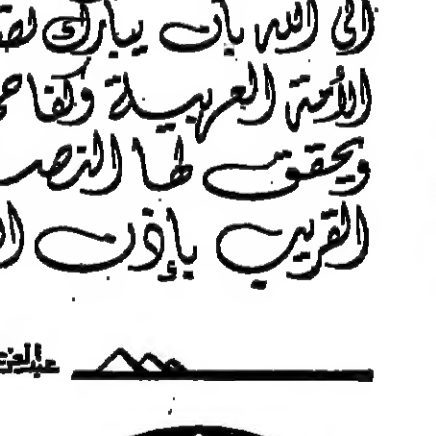 الى الله بأن يبارك
الأمة العربية وكفاح
ويحقق لها النصر
القريب بإذن